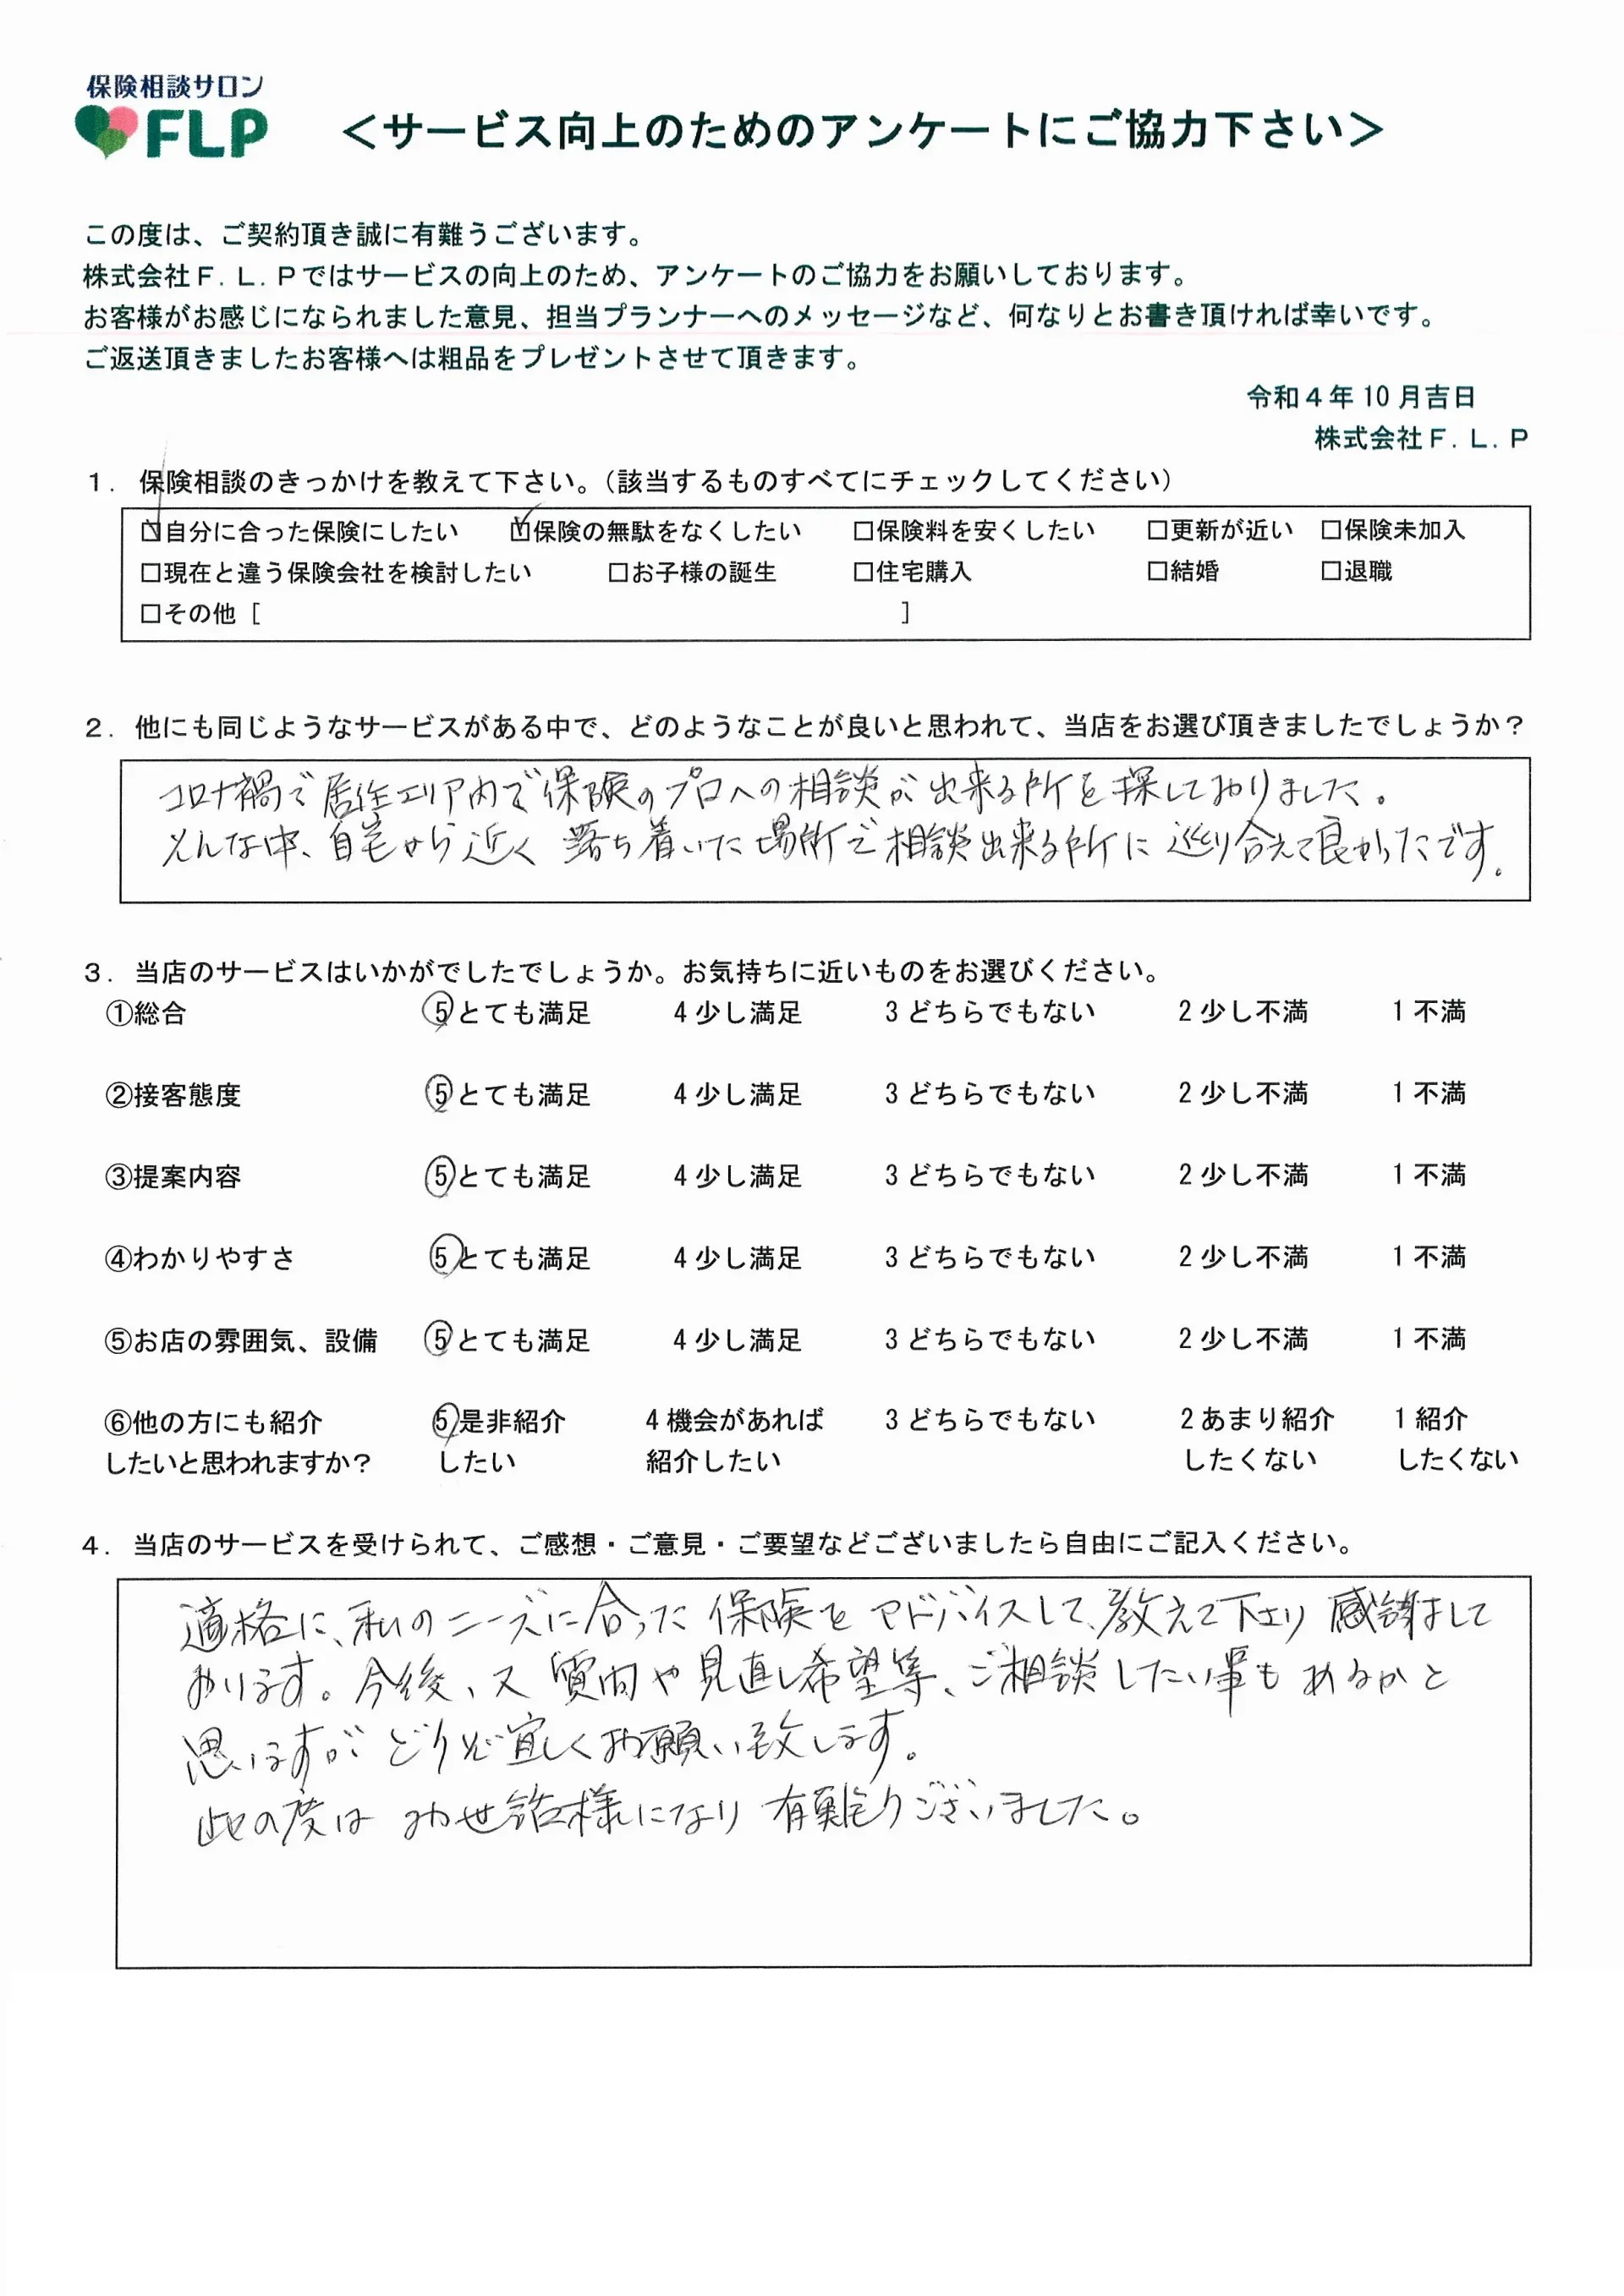 保険相談サロン
FLP
＜サービス向上のためのアンケートにご協力下さい＞
この度は、ご契約頂き誠に有難うございます。
株式会社Ｆ．Ｌ．Ｐではサービスの向上のため、アンケートのご協力をお願いしております。
お客様がお感じになられました意見、担当プランナーへのメッセージなど、何なりとお書き頂ければ幸いです。
ご返送頂きましたお客様へは粗品をプレゼントさせて頂きます。
令和４年 10 月吉日
株式会社Ｆ．Ｌ．Ｐ
１．保険相談のきっかけを教えて下さい。（該当するものすべてにチェックしてください）
☑自分に合った保険にしたい ☑保険の無駄をなくしたい □保険料を安くしたい □更新が近い □保険未加入
□現在と違う保険会社を検討したい □お子様の誕生 □住宅購入 □結婚 □退職
□その他［ ］
２．他にも同じようなサービスがある中で、どのようなことが良いと思われて、当店をお選び頂きましたでしょうか？
コロナ禍で居住エリア内で保険のプロへの相談が出来る所を探しておりました。
そんな中、自宅から近く落ち着いた場所で相談出来る所に巡り合えて良かったです。
３．当店のサービスはいかがでしたでしょうか。お気持ちに近いものをお選びください。
①総合 5 とても満足 4 少し満足 3 どちらでもない 2 少し不満 1 不満
②接客態度 5 とても満足 4 少し満足 3 どちらでもない 2 少し不満 1 不満
③提案内容 5 とても満足 4 少し満足 3 どちらでもない 2 少し不満 1 不満
④わかりやすさ 5 とても満足 4 少し満足 3 どちらでもない 2 少し不満 1 不満
⑤お店の雰囲気、設備 5 とても満足 4 少し満足 3 どちらでもない 2 少し不満 1 不満
⑥他の方にも紹介 5 是非紹介 4 機会があれば 3 どちらでもない 2 あまり紹介 1 紹介
したいと思われますか？ したい 紹介したい したくない したくない
４．当店のサービスを受けられて、ご感想・ご意見・ご要望などございましたら自由にご記入ください。
適格に、私のニーズに合った保険をアドバイスして、教えて下さり感謝まして
おります。今後、又質問や見直し希望等、ご相談したい事もあるかと
思いますがどうぞ宜しくお願い致します。
此の度はお世話様になり有難うございました。